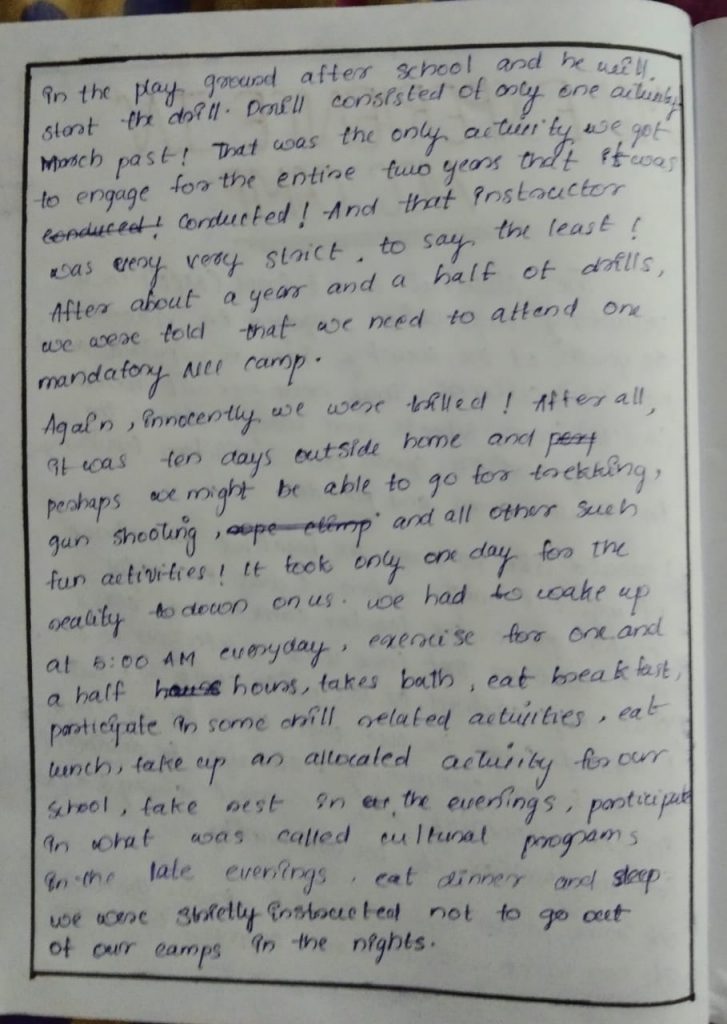 in the play ground after school and he will.
start the drill. Drill consisted of only one activity
March past! That was the only activity we got
to engage for the entire two years that it was
conduced! conducted! And that instructor
was very very strict. to say the least!
After about a year and a half of drills,
we were told that we need to attend one
mandatory NCC camp.
Again, innocently we were thrilled! After all,
it was ten days outside home and perf
perhaps we might be able to go for trekking,
gun shooting, rope climp and all other such
fun activities! It took only one day for the
reality to down on us. we had to wake up
at 5:00 AM everyday, exercise for one and
a half hours, takes bath, eat break fast,
participate in some drill related activities, eat
lunch, take up an allocated activity for our
school, take rest in the evenings, participate
in what was called cultural programs
in the late evenings, eat dinner and sleep
we were strictly instructed not to go out
of our camps in the nights.